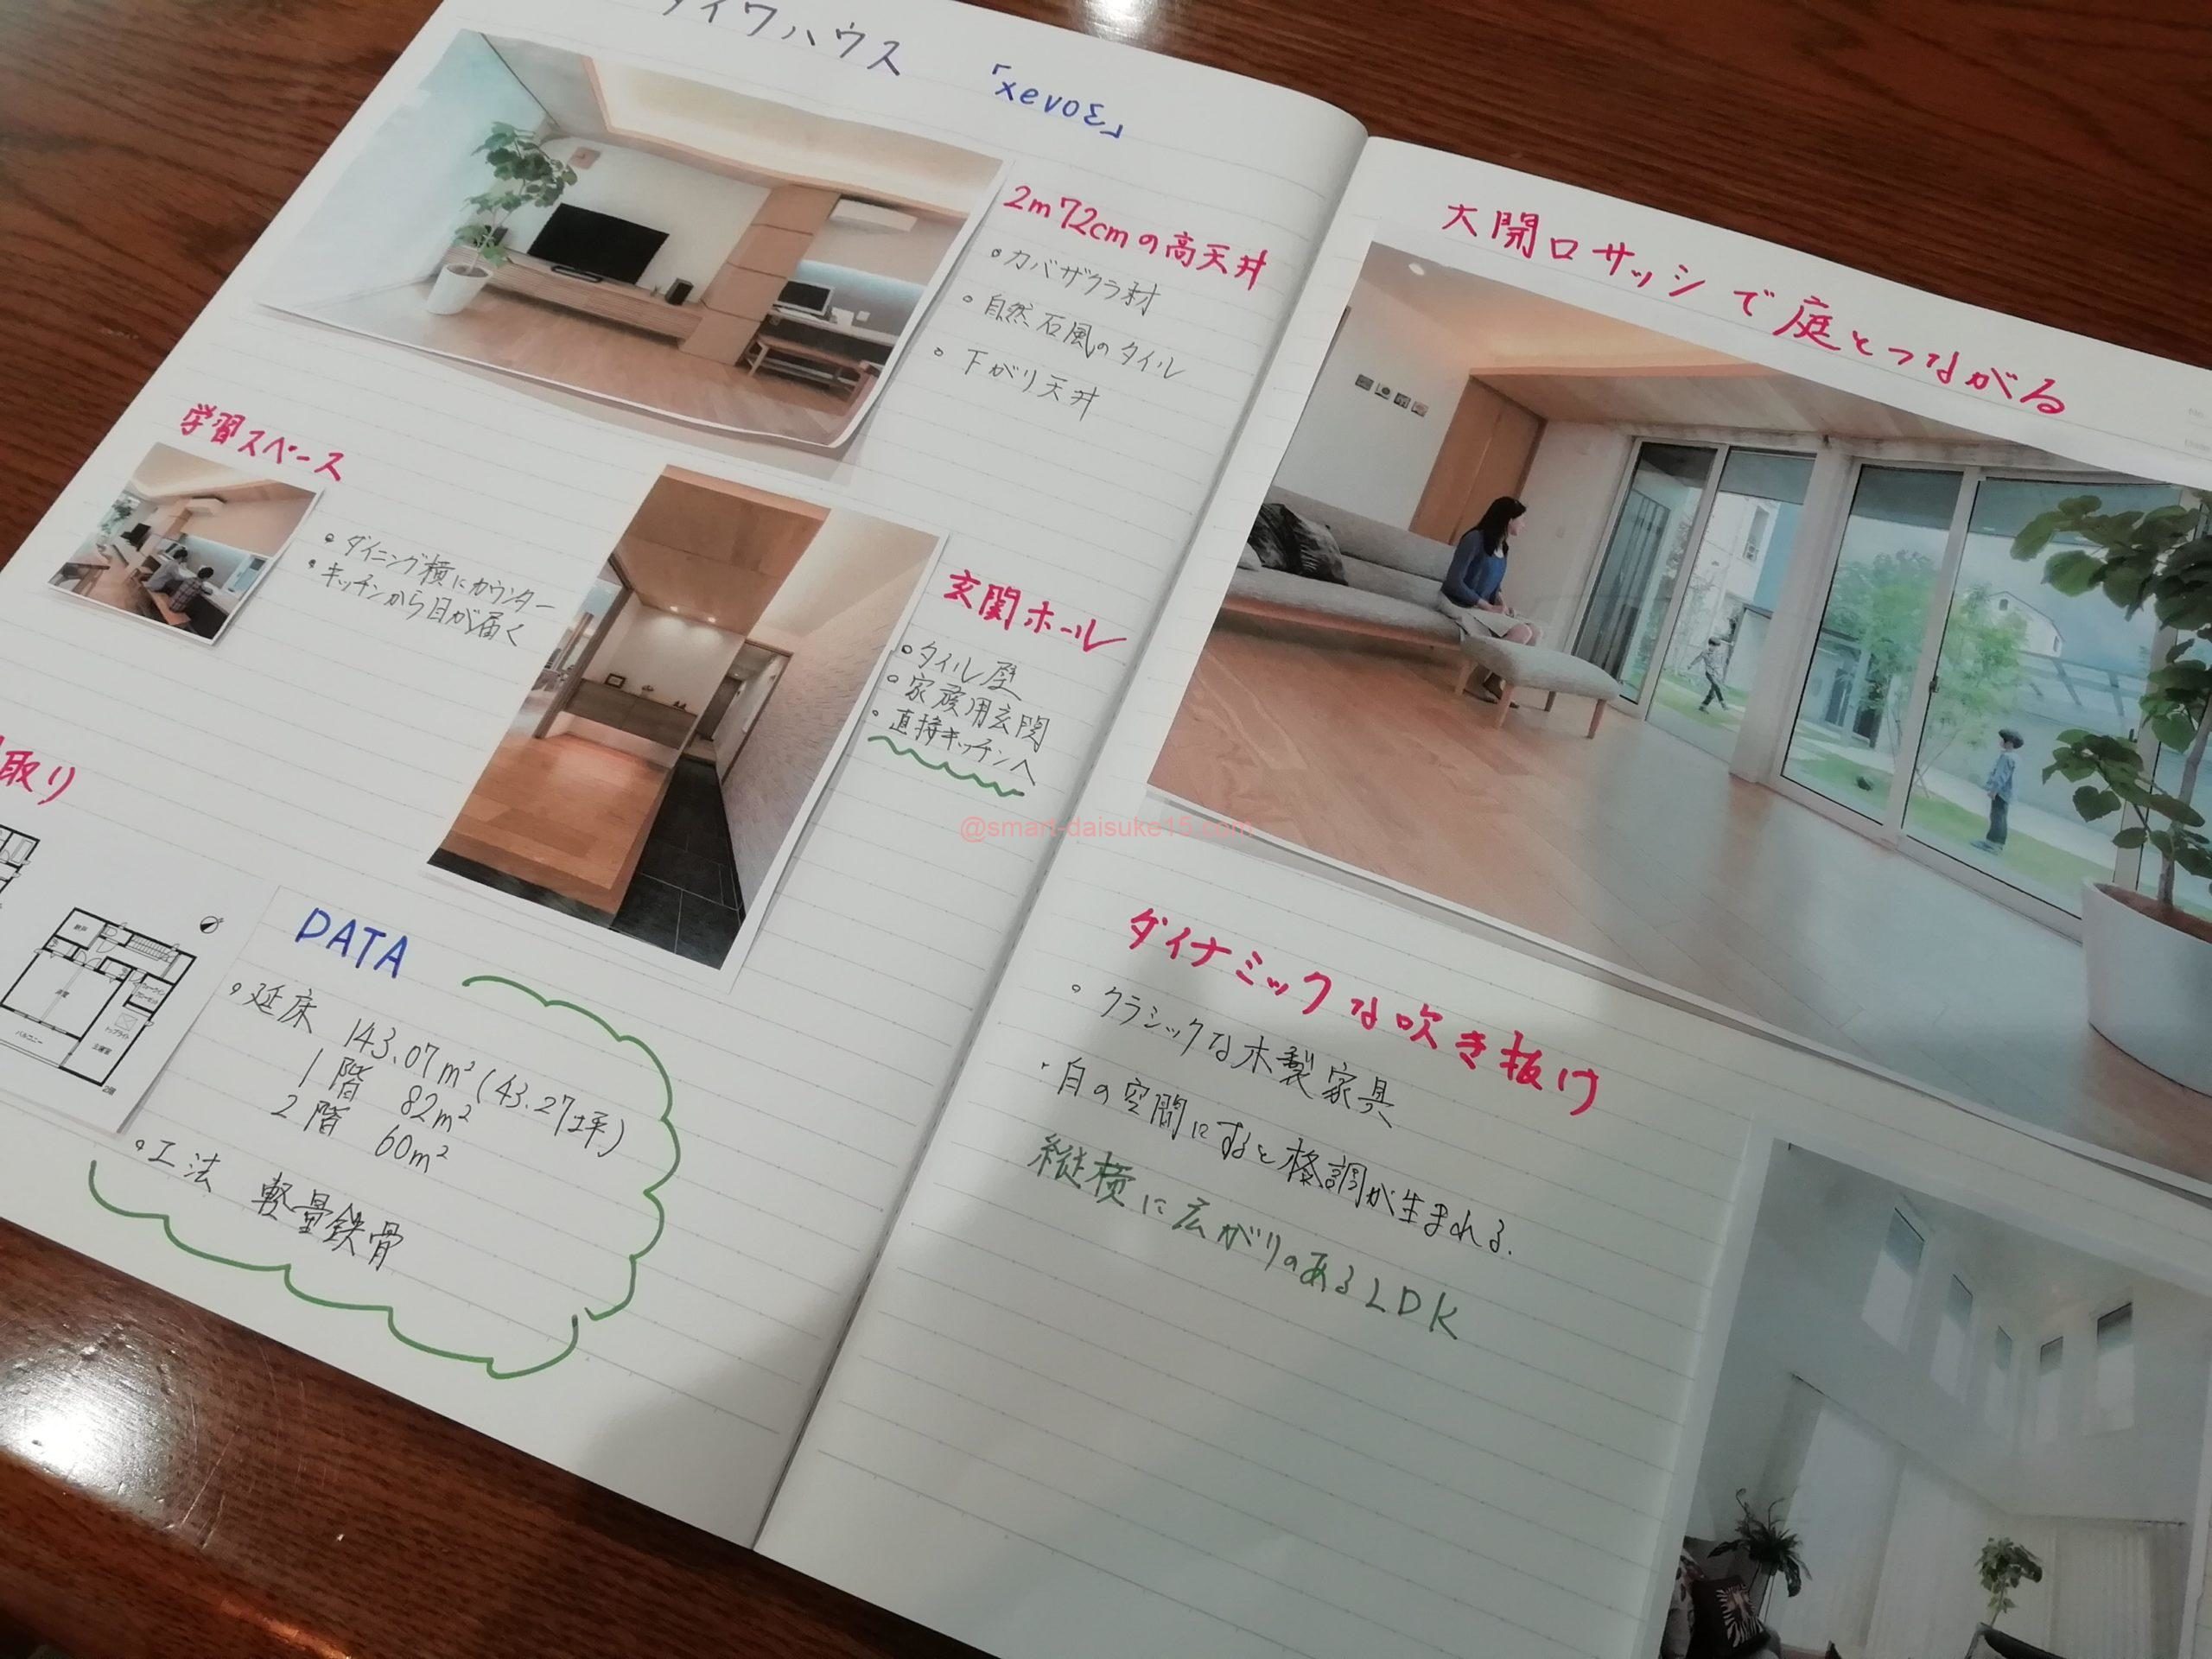 ダイワハウス 「xevoΣ」
2m72cmの高天井
・カバザクラ材
・自然石風のタイル
・下がり天井
学習スペース
・ダイニング横にカウンター
・キッチンから目が届く
玄関ホール
・タイル壁
・家族用玄関
・直接キッチンへ
取り
DATA
・延床 143.07m²(43.27坪)
1階 82m²
2階 60m²
・工法 軽量鉄骨
バルコニー
2階
大開口サッシで庭とつながる
@smart-daisuke15.com
ダイナミックな吹き抜け
・クラシックな木製家具
・白の空間にすると格調が生まれる.
縦横に広がりのあるLDK